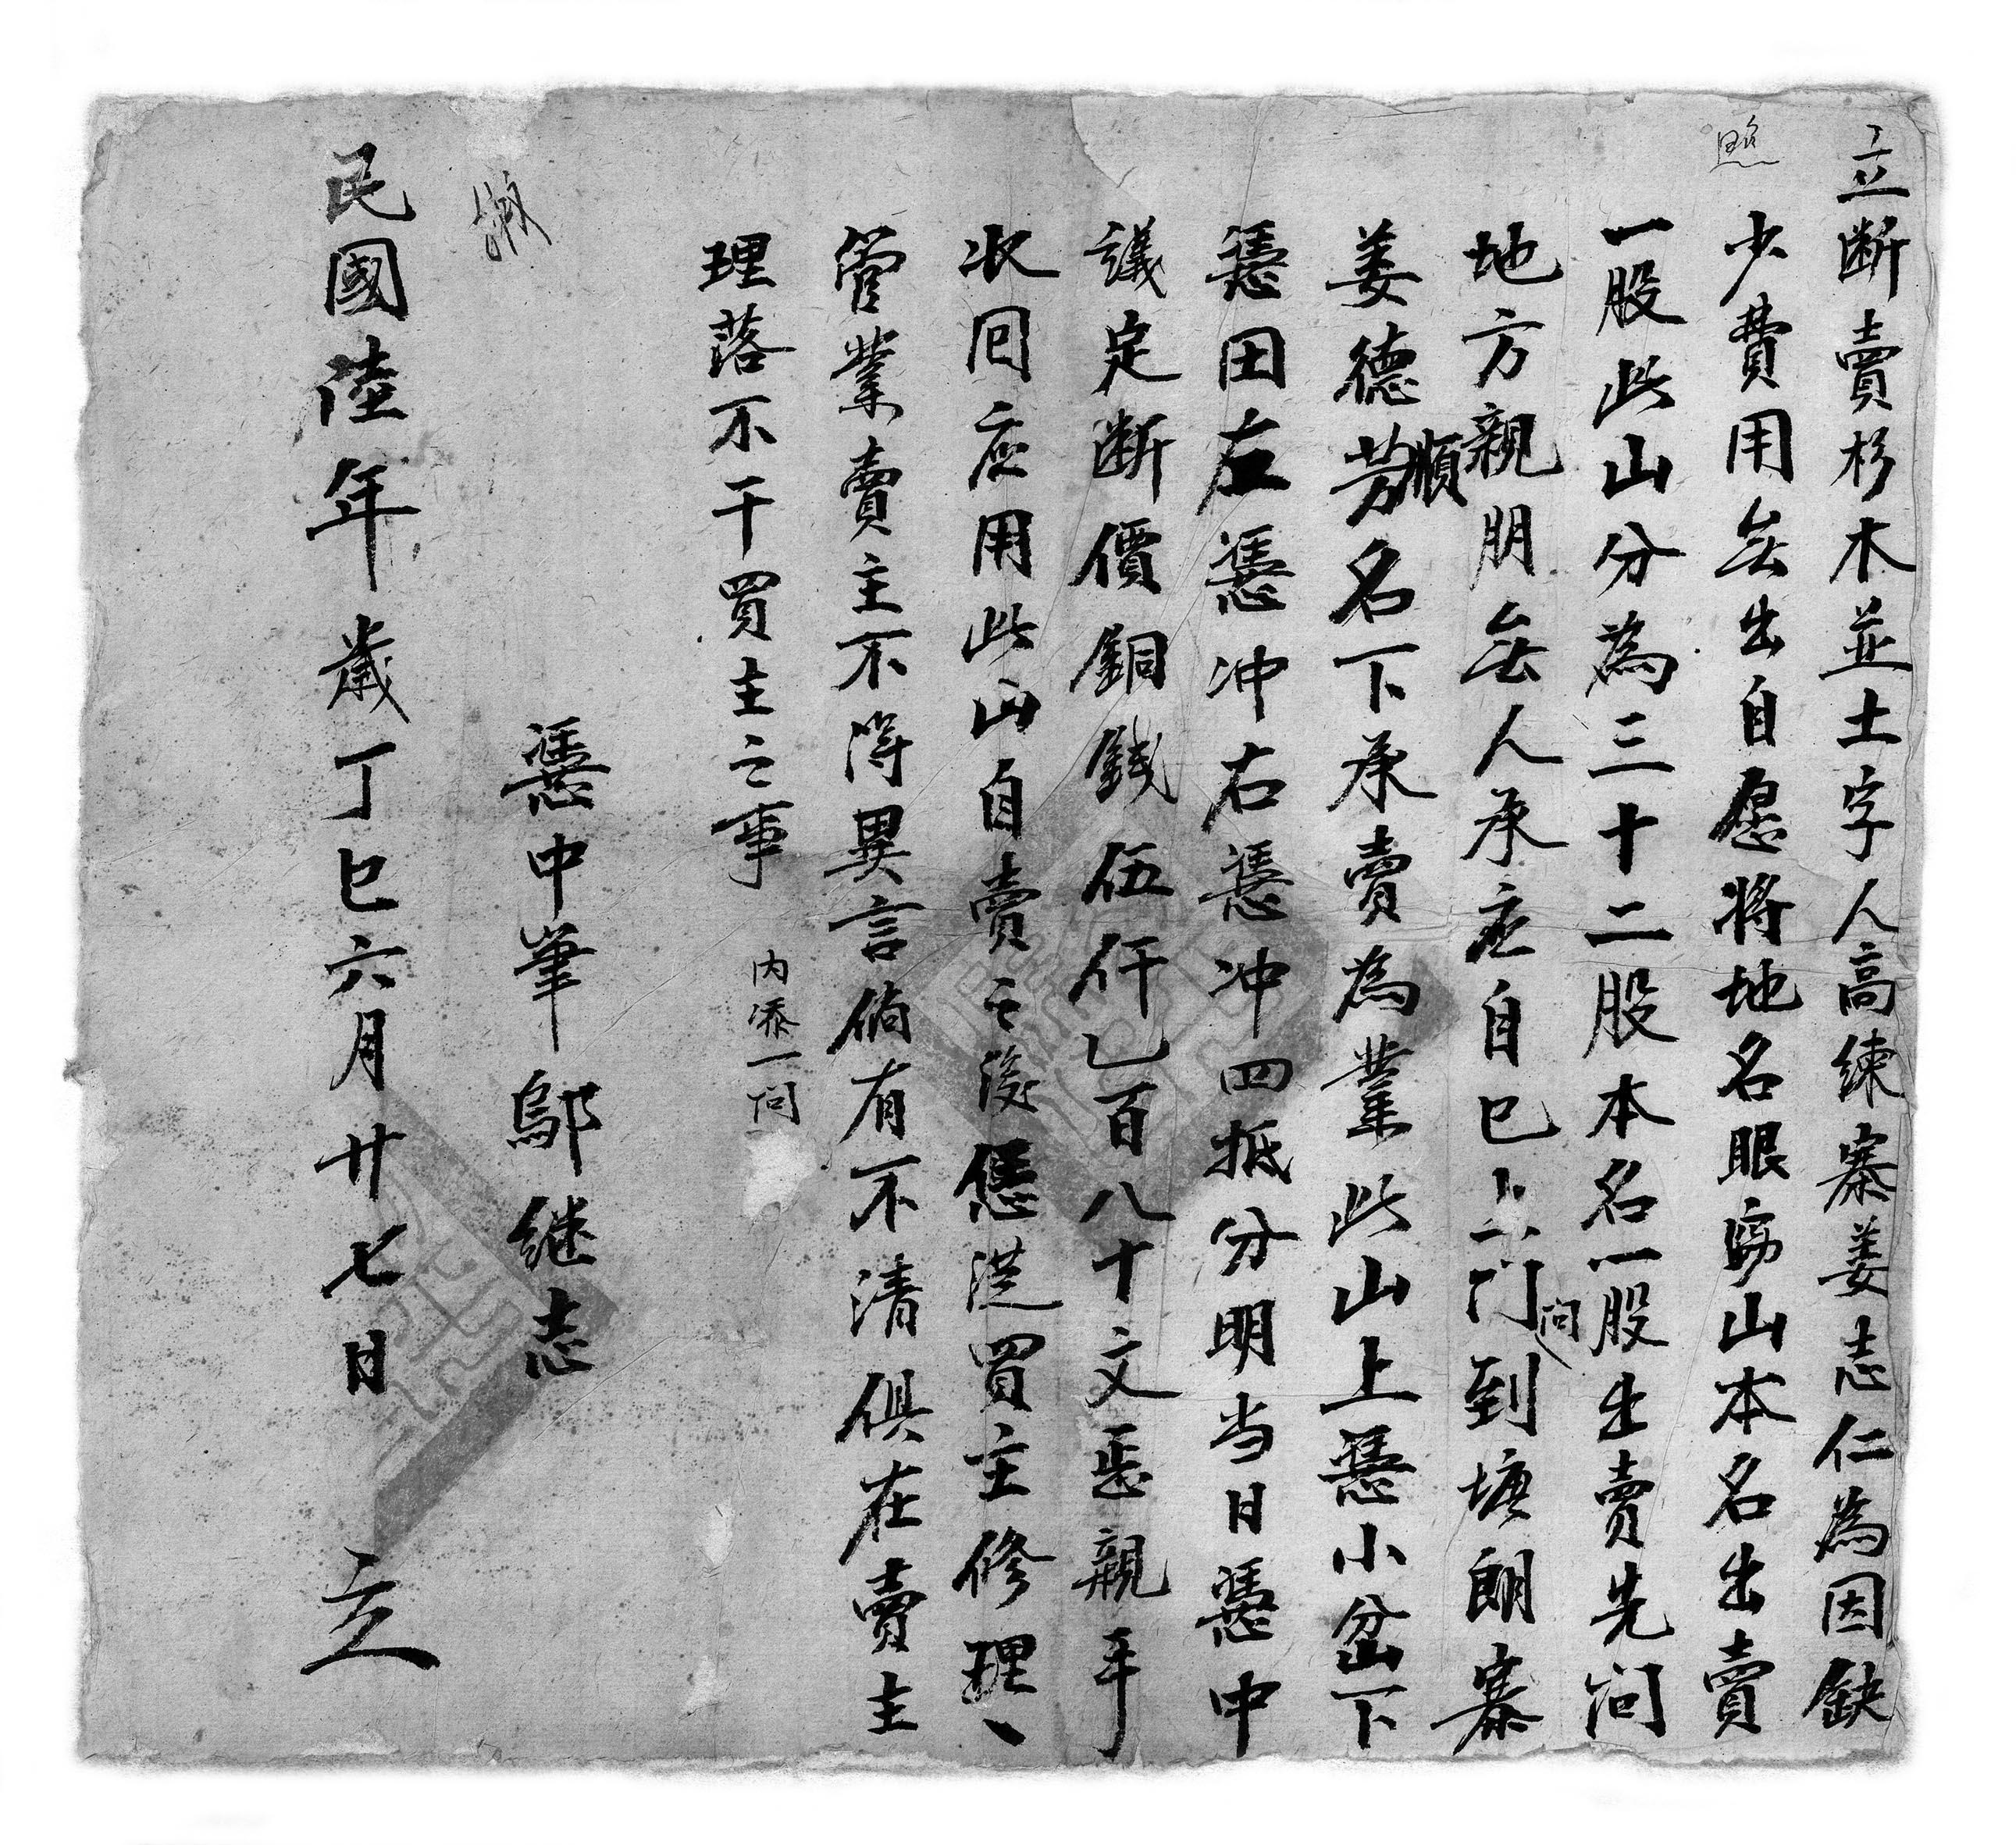 立断賣杉木並土字人高練寨姜志仁為因缺
照
少費用無出自愿將地名眼窮山本名出賣
一股此山分為三十二股本名一股出賣先问
地方親朋無人承应自己上门问到塘朗寨
姜德芳順名下承賣為業此山上憑小岔下
憑田左憑冲右憑冲四抵分明当日憑中
議定断價銅錢伍仟乚百八十文恁親手
收囘应用此山自賣之後憑從買主修理、
管業賣主不得異言倘有不清俱在賣主
理落不干買主之事
内添一问
憑中筆鄔继志
民國陸年歲丁巳六月廿七日 立